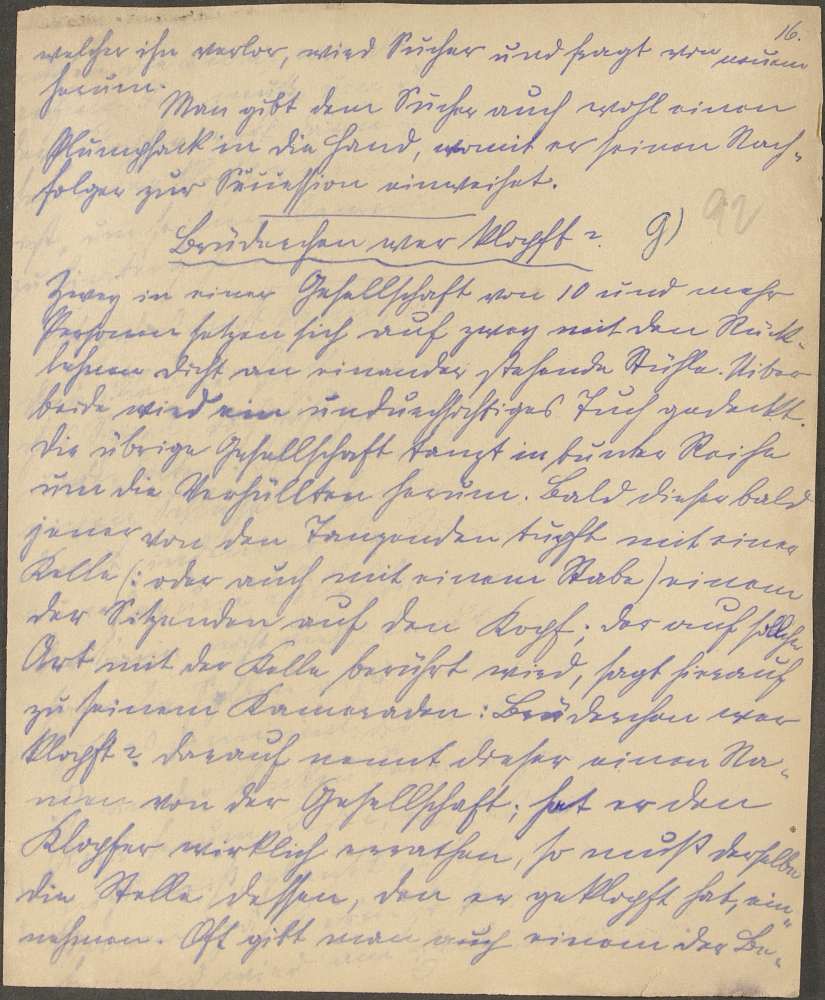 16.
welcher ihn verlor, wird Sucher und fragt von neuem
herum.
Man gibt dem Sucher auch wohl einen
Plumpsack in die Hand, womit er seinen Nach-
folger zur Succession einweihet.
Brüderchen wer klopft? g) 92
Zwey in einer Gesellschaft von 10 und mehr
Personen setzen sich auf zwey mit den Rück-
lehnen dicht an einander stehende Stühle. Über
beide wird ein undurchsichtiges Tuch gedeckt.
Die übrige Gesellschaft tanzt in bunter Reihe
um die Verhüllten herum. Bald dieser bald
jener von den Tanzenden tupft mit einer
Kelle (: oder auch mit einem Stabe) einem
der Sitzenden auf den Kopf; der auf solche
Art mit der Kelle berührt wird, sagt hierauf
zu seinem Kameraden: Brüderchen wer
klopft? darauf nennt dieser einen Na-
men von der Gesellschaft; hat er den
Klopfer wirklich errathen, so muß derselbe
die Stelle dessen, den er geklopft hat, ein-
nehmen. Oft gibt man auch einem der Be-